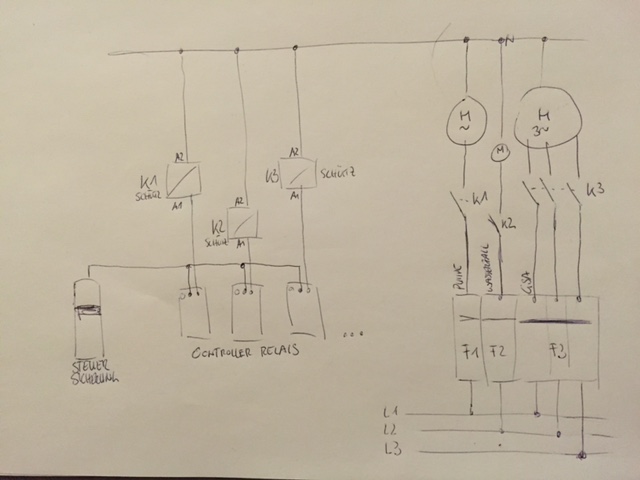 N
M
~
M
3~
M
A2
K1
SCHÜTZ
A1
A2
K2
SCHÜTZ
A1
A2
K3
SCHÜTZ
A1
K1
K2
K3
PUMPE
WASSERFALL
STEUER
SICHERUNG
CONTROLLER RELAIS
...
F1
F2
F3
L1
L2
L3